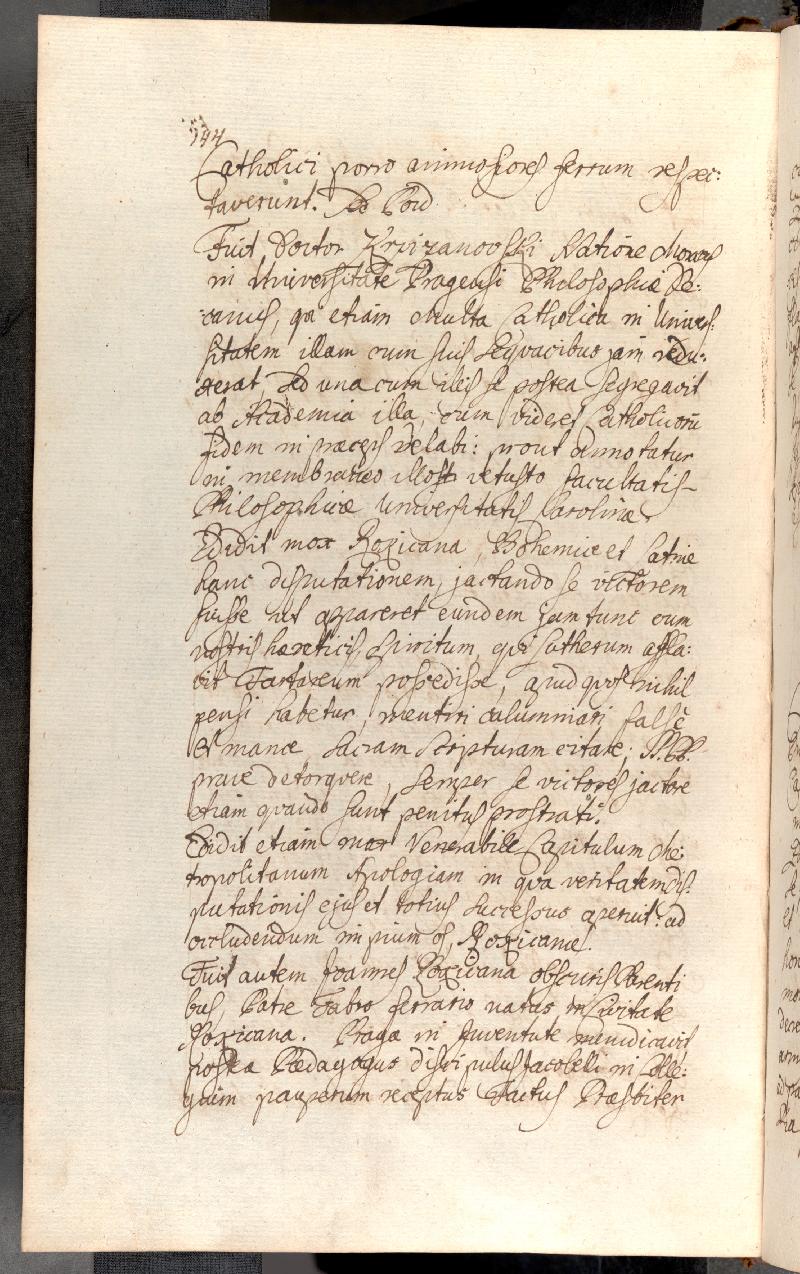 544
Catholici porro animosiores ferrum respec:
taverunt.
Fuit Doctor Krvizanovski Natione Moravus
in Universitate Pragensi Philosophiæ De:
canus, qui etiam multa Catholica in Univer:
sitatem illam cum suis Sequacibus jam redu:
xerat, sed una cum illis se postea segregavit
ab Academia illa, cum videret Catholicorū
fidem in præceps delabi: prout annotatur
in membraneo illo vetusto facultatis
Philosophicæ Universitatis Carolinæ.
Edidit mox Roxicana, Bohemice et Latine
hanc disputationem, jactando se victorem
fuisse ut appareret eundem jam tunc cum
nostris hæreticis, Spiritum, qui Lutherum affla:
vit Tartareum possedisse, apud quos nihil
pensi habetur, mentiri calumniari falsè
et mance sacram Scripturam citare; SS. PP.
prave detorquere, semper se victores jactare
etiam quando sunt penitus prostrati.
Edidit etiam mox Venerabile Capitulum Me:
tropolitanum Apologiam in qva veritatem dis:
putationis ejus et totius successus aperuit: ad
occludendum impium os Roxicanæ.
Fuit autem Joannes Roxicana obscuris Parenti
bus, Patre Fabro ferrario natus, in Civitate
Roxicana. Pragæ in Juventute mendicavit
postea Pædagogus discipulus Jacobelli in Colle:
gium pauperum receptus Factus Præsbiter